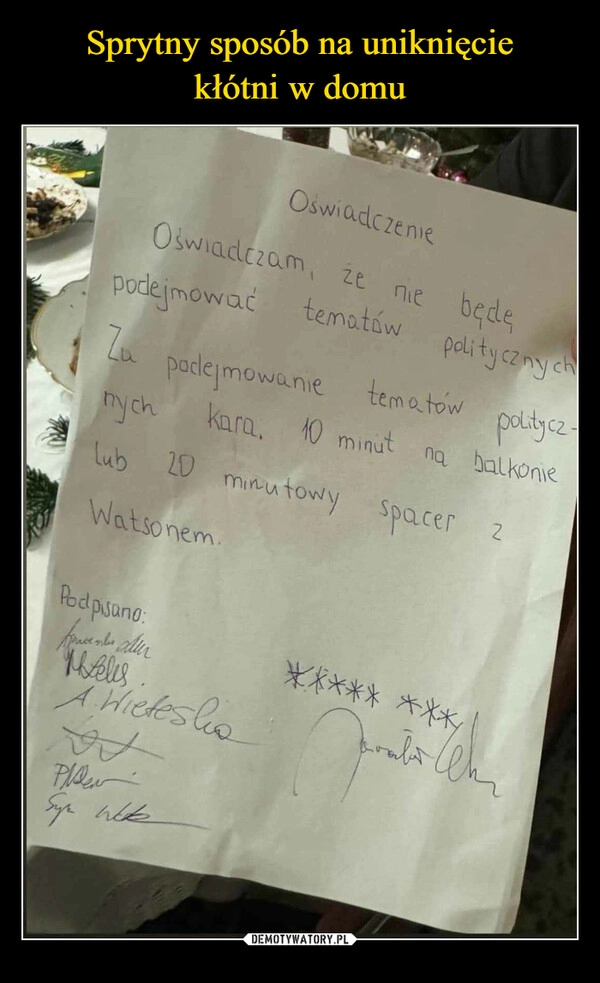 Sprytny sposób na uniknięcie
kłótni w domu
Oświadczenie
Oświadczam, że nie będę
podejmować tematów politycznych
Za podejmowanie tematów politycz-
nych kara. 10 minut na balkonie
lub 20 minutowy spacer z
Watsonem.
Podpisano:
***** ***
A. Wieteska
DEMOTYWATORY.PL